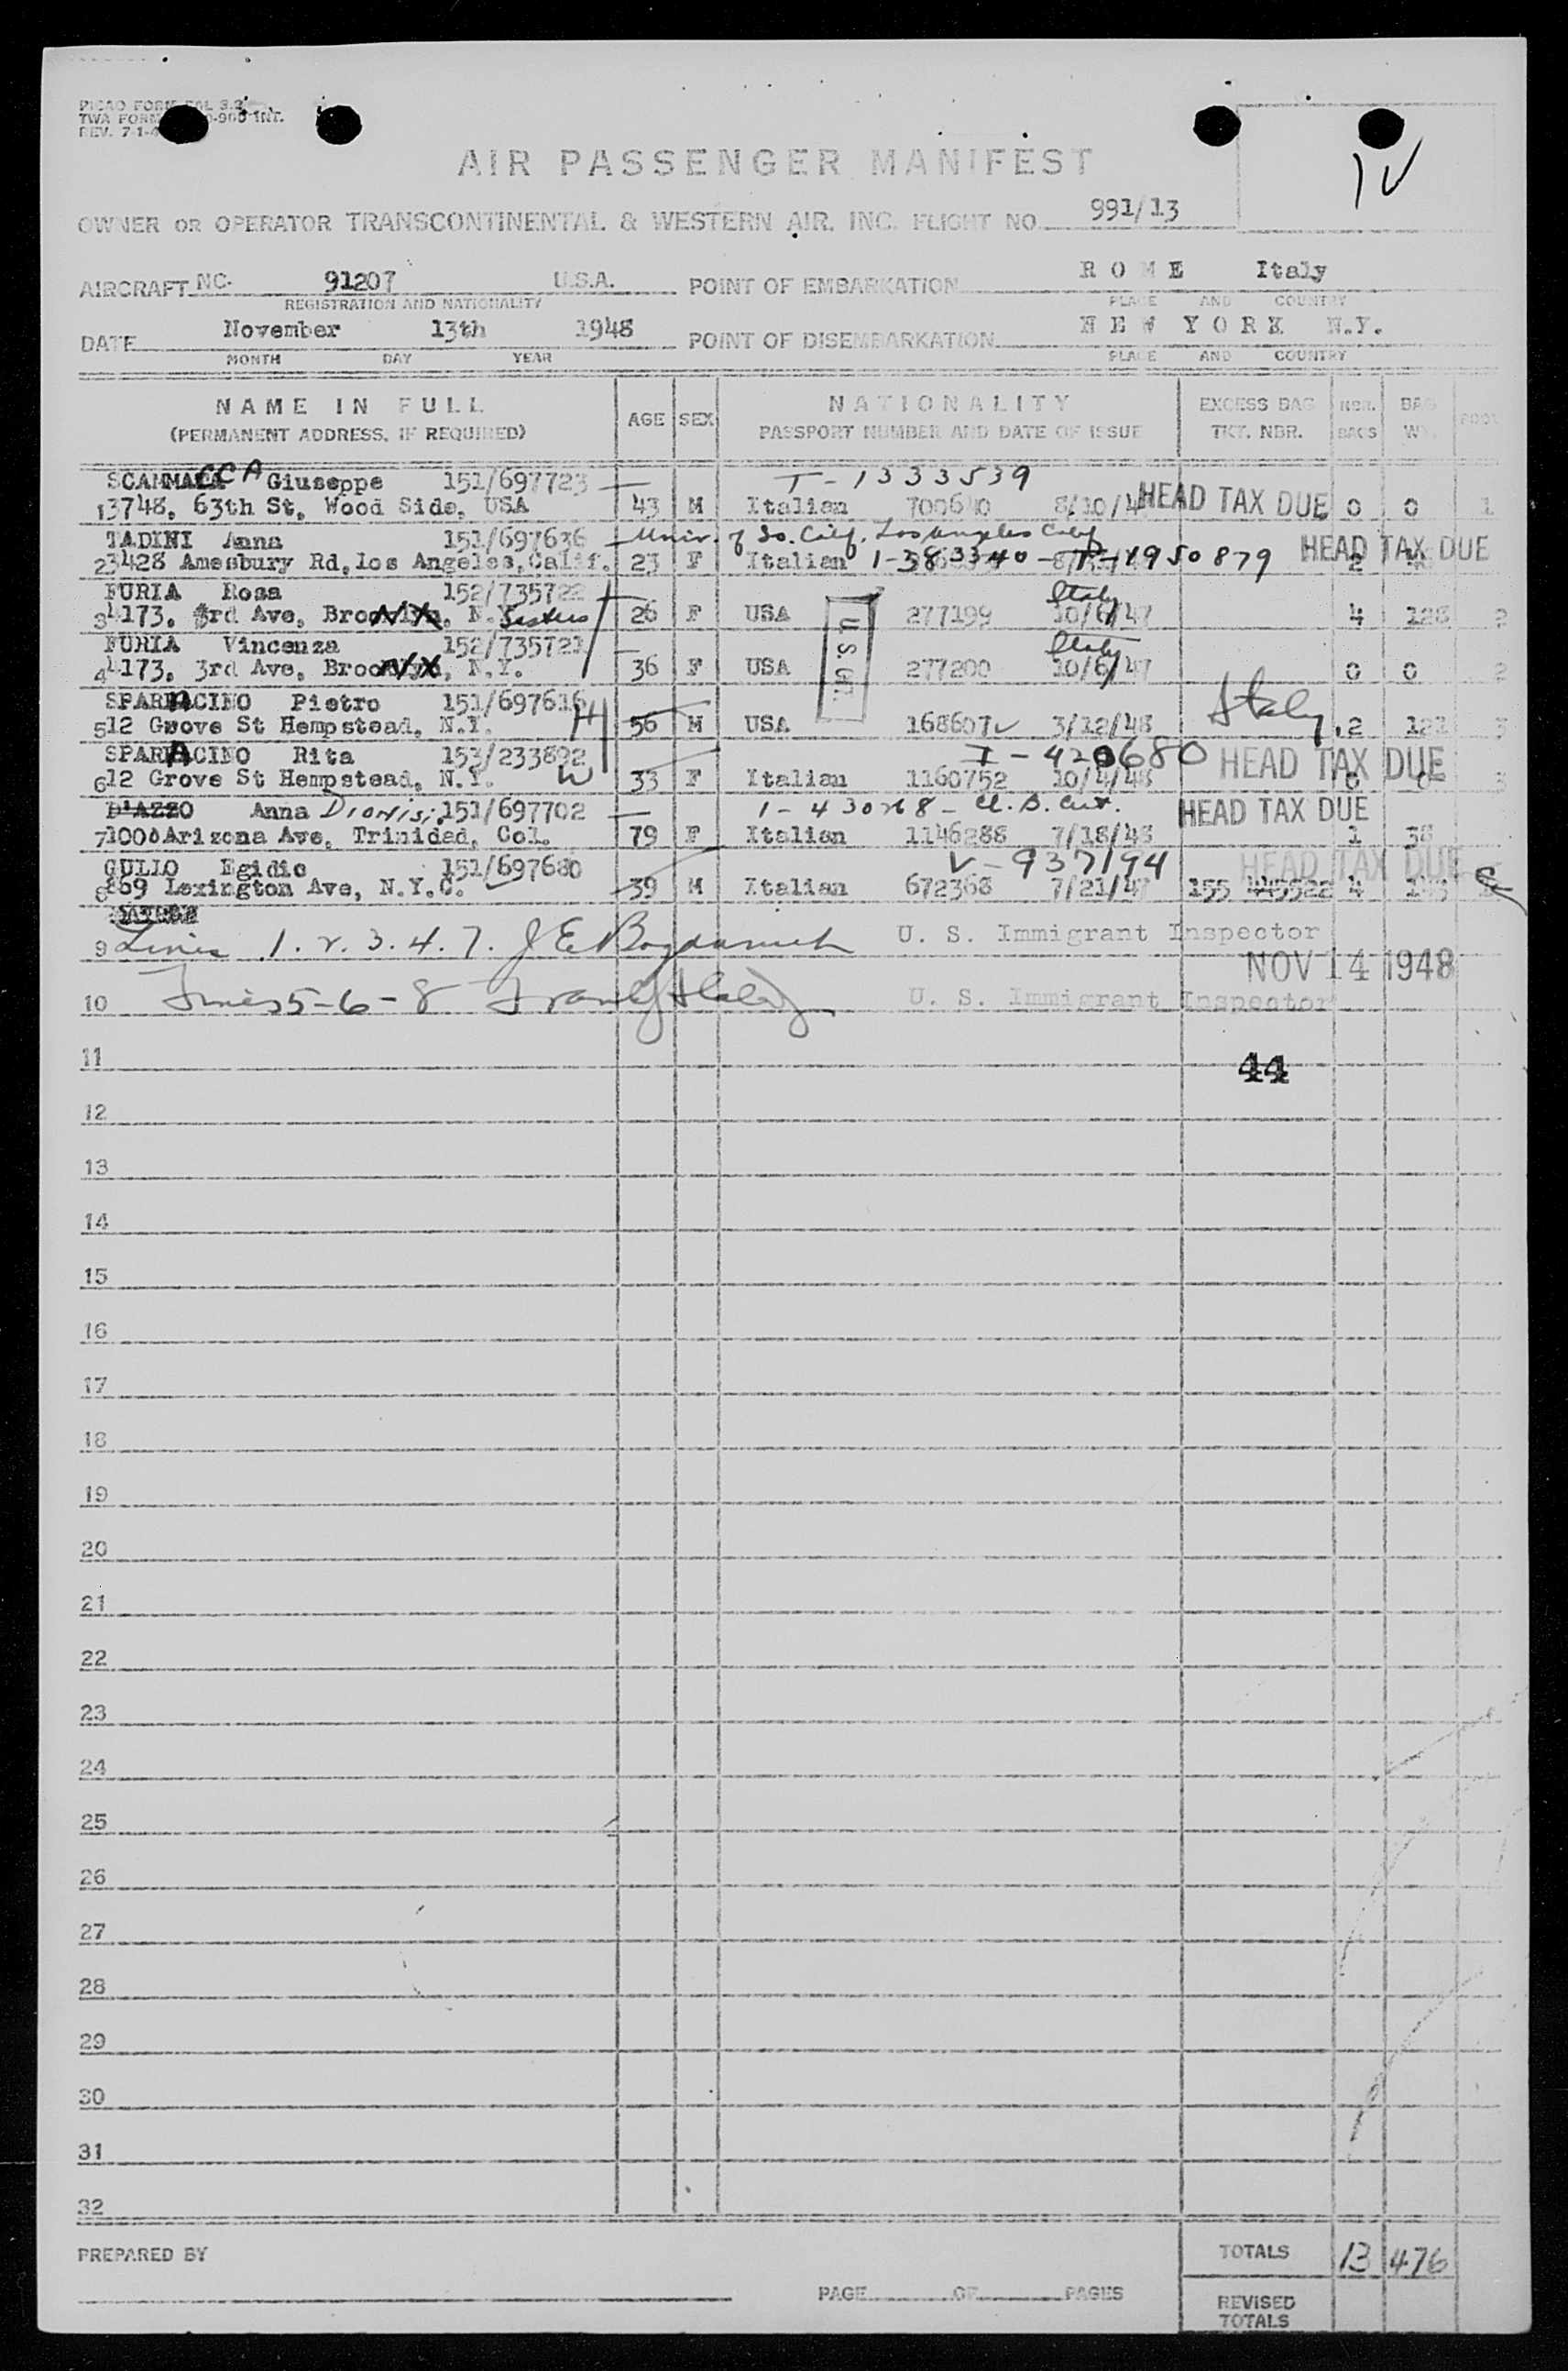 PICAO FORM FAL 3.2
TWA FORM 0-900 INT.
REV. 7-1-4
1V
AIR PASSENGER MANIFEST
OWNER OR OPERATOR TRANSCONTINENTAL & WESTERN AIR, INC. FLIGHT NO. 991/13
AIRCRAFT NC. 91207 U.S.A. POINT OF EMBARKATION ROME Italy
REGISTRATION AND NATIONALITY PLACE AND COUNTRY
DATE November 13th 1948 POINT OF DISEMBARKATION NEW YORK N.Y.
MONTH DAY YEAR PLACE AND COUNTRY
NAME IN FULL AGE SEX NATIONALITY EXCESS BAG NBR. BAG
(PERMANENT ADDRESS, IF REQUIRED) PASSPORT NUMBER AND DATE OF ISSUE TKT. NBR. BAGS WT.
SCAMMACCA Giuseppe 151/697723 — T-1333539
1 3748, 63th St, Wood Side, USA 43 M Italian 700640 8/10/4 HEAD TAX DUE 0 0 1
TADINI Anna 151/697636 — Univ. of So. Calif. Los Angeles Calif
2 3428 Amesbury Rd, los Angeles, Calif. 23 F Italian 1-383340 - T-1950879 HEAD TAX DUE 2
FURIA Rosa 152/735722 — Italy
3 4173, 3rd Ave, Bronx, N.Y. Sisters 26 F USA 277199 10/6/47 4 128 2
FURIA Vincenza 152/735721 — Italy
4 4173, 3rd Ave, Bronx, N.Y. 36 F USA 277200 10/6/47 0 0 2
U.S. CIT.
SPARACINO Pietro 151/697616 H
5 12 Grove St Hempstead, N.Y. 56 M USA 168607 3/12/48 Italy 2 121 3
SPARACINO Rita 153/233892 I-420680
6 12 Grove St Hempstead, N.Y. W 33 F Italian 1160752 10/4/48 HEAD TAX DUE 0 0 3
D'AZZO Anna Dionisi 151/697702 — 1-430268 -
7 1000 Arizona Ave, Trinidad, Col. 79 F Italian 1146288 7/18/48 HEAD TAX DUE 1 38
GULLO Egidio 151/697680 V-937194
8 869 Lexington Ave, N.Y.C. 39 M Italian 672368 7/21/47 155 445522 HEAD TAX DUE 4
9 Lines 1. 2. 3. 4. 7. J E Bogdanich U. S. Immigrant Inspector
NOV 14 1948
10 Lines 5-6-8 U. S. Immigrant Inspector
11
44
12
13
14
15
16
17
18
19
20
21
22
23
24
25
26
27
28
29
30
31
32
PREPARED BY TOTALS 13 476
PAGE OF PAGES REVISED
TOTALS